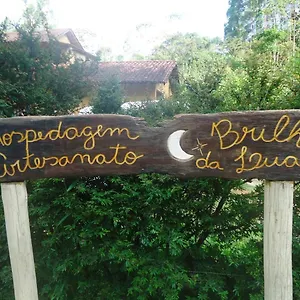 Hospedagem
Artesanato
Brilho
da Lua